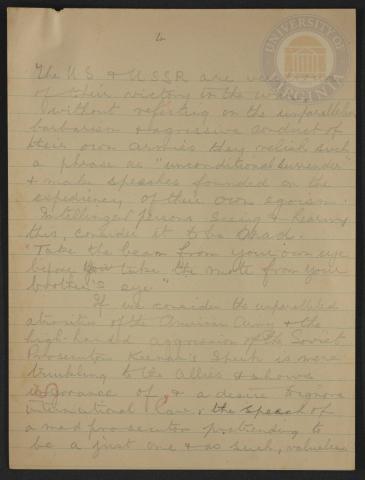 4
UNIVERSITY OF VIRGINIA
The US & USSR are
of their victory in the war,
without reflecting on the unparalleled
barbarism & agressive conduct of
their own armies they relish such
a phrase as "unconditional surrender"
& make speeches founded on the
expediency of their own egoism.
Intelligent persons seeing & hearing
this, consider it to be mad.
"Take the beam from your own eye
before you take the mote from your
brother's eye"
If we consider the unparalleled
atrocities of the American Army & the
high handed aggression of the Soviet
Prosecutor Keenan's Speech is mere
truckling to the Allies & shows
ignorance of, & a desire to ignore
international law, the speech of
a mad prosecutor pretending to
be a just one & as such, valueless